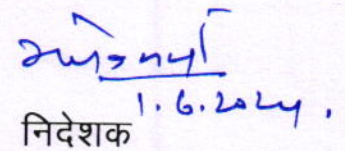 1.6.2024.
निदेशक